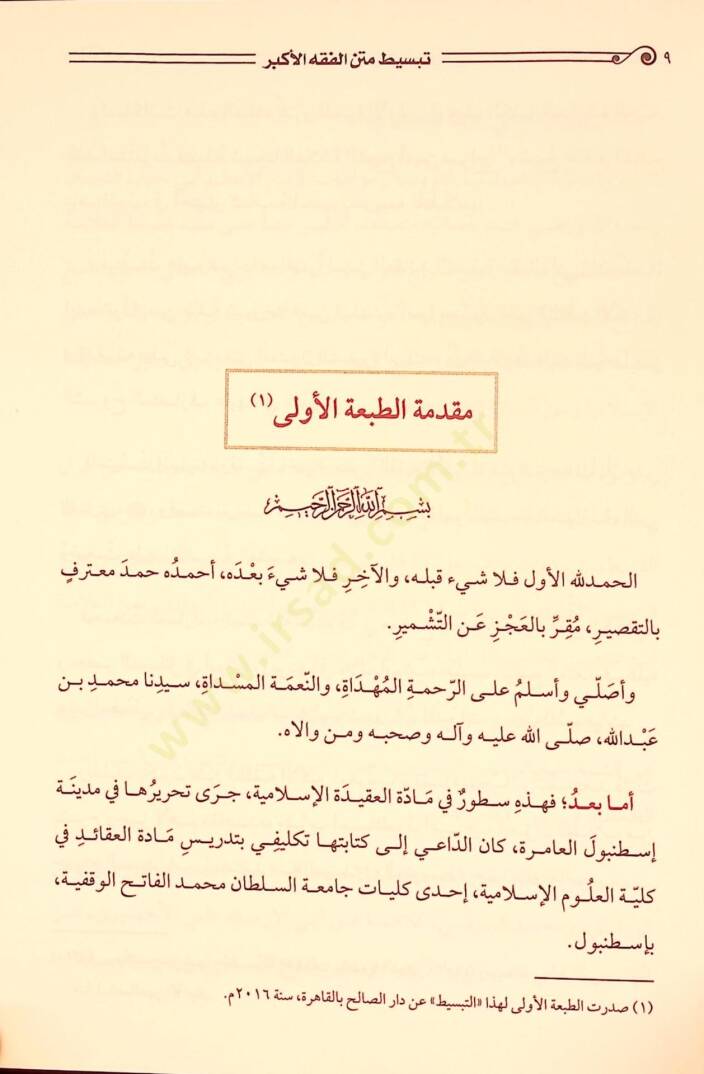 ٩ تبسيط متن الفقه الأكبر
مقدمة الطبعة الأولى (١)
بسم الله الرحمن الرحيم
الحمدلله الأول فلا شيء قبله، والآخِرِ فلا شيءَ بَعْدَه، أحمدُه حمدَ معترفٍ
بالتقصيرِ، مُقِرٍّ بالعَجْزِ عَنِ التّشْميرِ.
وأصَلّي وأسلمُ على الرّحمةِ المُهْدَاةِ، والنّعمَة المسْداةِ، سيدِنا محمدِ بن
عَبْدالله، صلّى الله عليه وآله وصحبه ومن والاه.
أما بعدُ؛ فهذهِ سطورٌ في مَادّة العقيدَة الإسلامية، جرَى تحريرُها في مدينَة
إسطنبولَ العامرة، كان الدّاعي إلى كتابتها تكليفِي بتدريسِ مَادة العقائدِ في
كليّة العلُوم الإسلامية، إحدى كليات جامعة السلطان محمد الفاتح الوقفية،
بإسطنبول.
(١) صدرت الطبعة الأولى لهذا «التبسيط» عن دار الصالح بالقاهرة، سنة ٢٠١٦م.
www.irsad.com.tr